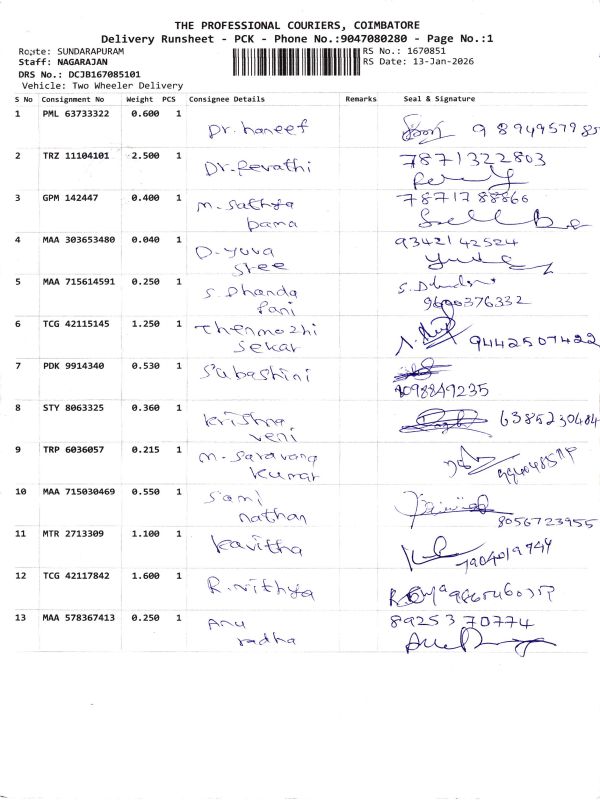 THE PROFESSIONAL COURIERS, COIMBATORE
Delivery Runsheet - PCK - Phone No.:9047080280 - Page No.:1
Route: SUNDARAPURAM RS No.: 1670851
Staff: NAGARAJAN RS Date: 13-Jan-2026
DRS No.: DCJB167085101
Vehicle: Two Wheeler Delivery
S No Consignment No Weight PCS Consignee Details Remarks Seal & Signature
1 PML 63733322 0.600 1
Dr. haneef
2 TRZ 11104101 2.500 1 7871322803
Dr. Revathi
3 GPM 142447 0.400 1 7871788866
M. Sathya
bama
4 MAA 303653480 0.040 1 9342142524
D. Yuva
sree
5 MAA 715614591 0.250 1
S. Dhanda
Pani 9600376332
6 TCG 42115145 1.250 1
Thenmozhi
Sekar 9442507422
7 PDK 9914340 0.530 1
Subashini
8098849235
8 STY 8063325 0.360 1
krishna 6385230484
veni
9 TRP 6036057 0.215 1
M. Saravana
kumar
10 MAA 715030469 0.550 1
Sami
nathan 8056723955
11 MTR 2713309 1.100 1
kavitha 7904019744
12 TCG 42117842 1.600 1
R. Nithya
13 MAA 578367413 0.250 1 8925370774
Anu
radha